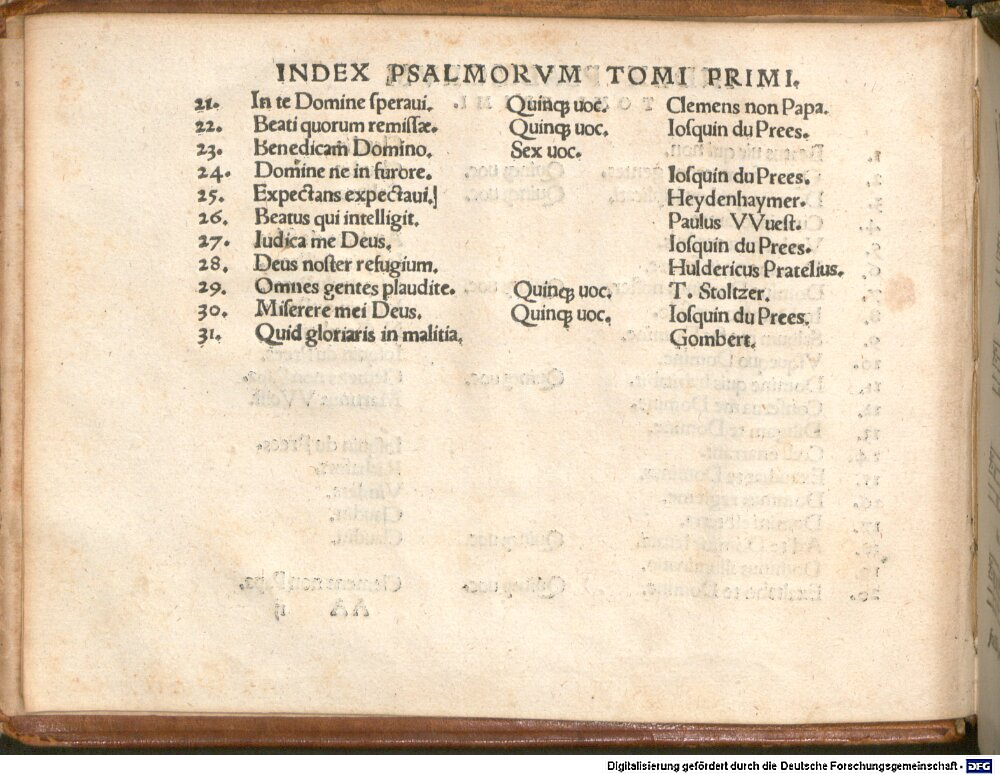 INDEX PSALMORVM TOMI PRIMI.
21. In te Domine ſperaui. Quinqꝫ uoc. Clemens non Papa.
22. Beati quorum remiſſæ. Quinqꝫ uoc. Ioſquin du Prees.
23. Benedicam Domino. Sex uoc.
24. Domine ne in furore. Ioſquin du Prees.
25. Expectans expectaui.] Heydenhaymer.
26. Beatus qui intelligit. Paulus VVueſt.
27. Iudica me Deus. Ioſquin du Prees.
28. Deus noſter refugium. Huldericus Pratelius.
29. Omnes gentes plaudite. Quinqꝫ uoc. T. Stoltzer.
30. Miſerere mei Deus. Quinqꝫ uoc. Ioſquin du Prees.
31. Quid gloriaris in malitia. Gombert.
Digitalisierung gefördert durch die Deutsche Forschungsgemeinschaft - DFG